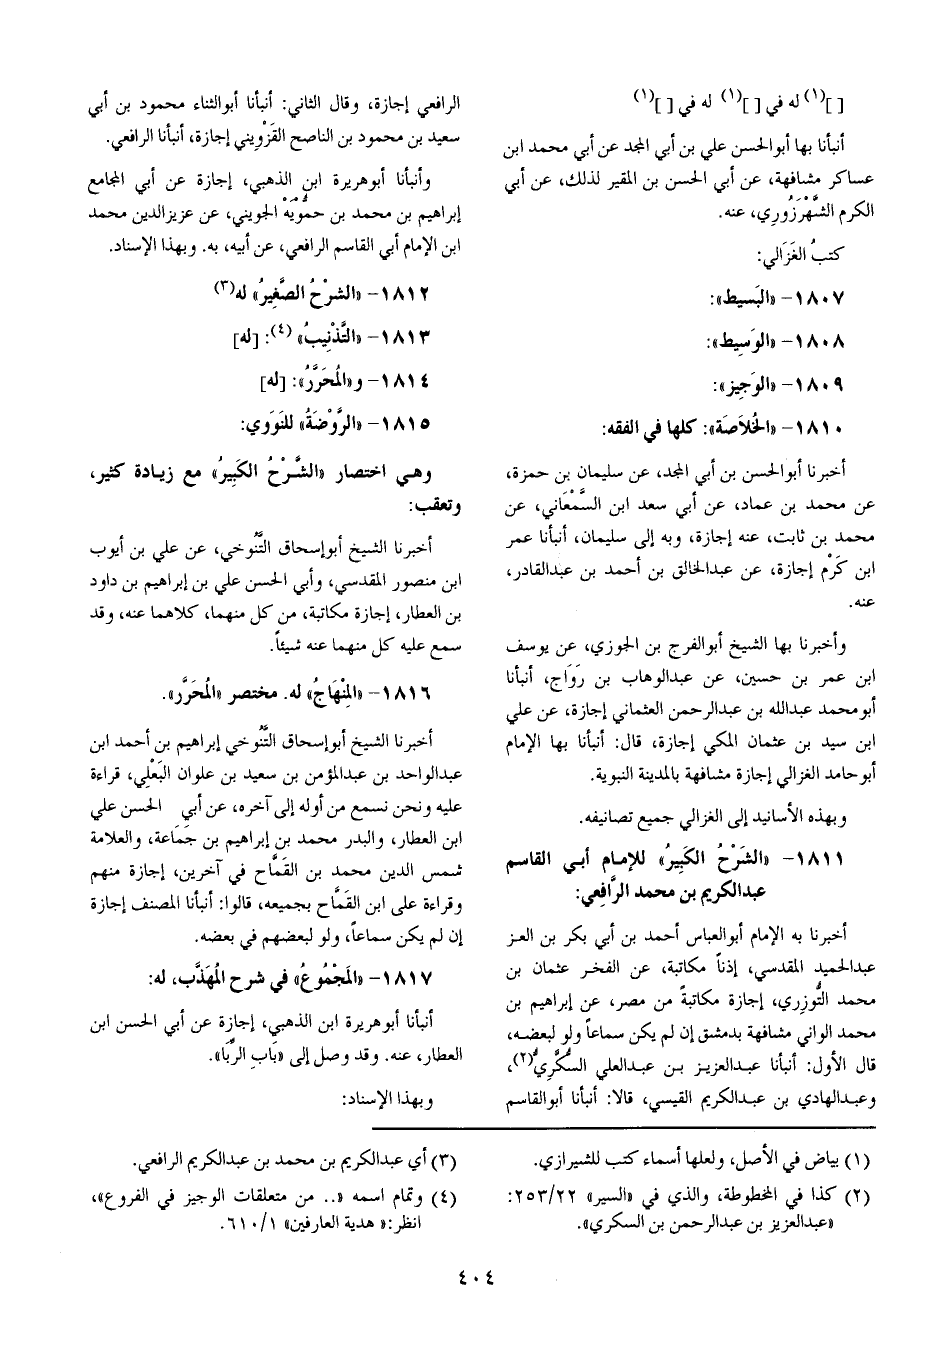 [ ](١) له في [ ](١) له في [ ](١)
أنبأنا بها أبوالحسن علي بن أبي المجد عن أبي محمد ابن
عساكر مشافهة، عن أبي الحسن بن المقير لذلك، عن أبي
الكرم الشَّهْرَزُوري، عنه.
كتبُ الغَزَالي:
١٨٠٧- «البَسيط»:
١٨٠٨- «الوَسِيط»:
١٨٠٩- «الوَجِيز»:
١٨١٠- «الخُلاَصَة»: كلها في الفقه:
أخبرنا أبوالحسن بن أبي المجد، عن سليمان بن حمزة،
عن محمد بن عماد، عن أبي سعد ابن السَّمْعَاني، عن
محمد بن ثابت، عنه إجازة، وبه إلى سليمان، أنبأنا عمر
ابن كَرْم إجازة، عن عبدالخالق بن أحمد بن عبدالقادر،
عنه.
وأخبرنا بها الشيخ أبوالفرج بن الجوزي، عن يوسف
ابن عمر بن حسين، عن عبدالوهاب بن رَوَاج، أنبأنا
أبومحمد عبدالله بن عبدالرحمن العثماني إجازة، عن علي
ابن سيد بن عثمان المكي إجازة، قال: أنبأنا بها الإمام
أبوحامد الغزالي إجازة مشافهة بالمدينة النبوية.
وبهذه الأسانيد إلى الغزالي جميع تصانيفه.
١٨١١- «الشَرْحُ الكَبِيرُ» للإمام أبي القاسم
عبدالكريم بن محمد الرَّافعي:
أخبرنا به الإمام أبوالعباس أحمد بن أبي بكر بن العز
عبدالحميد المقدسي، إذناً مكاتبة، عن الفخر عثمان بن
محمد التُّوزري، إجازة مكاتبةً من مصر، عن إبراهيم بن
محمد الواني مشافهة بدمشق إن لم يكن سماعاً ولو لبعضه،
قال الأول: أنبأنا عبدالعزيز بن عبدالعلي السُّكَّرِيُّ(٢)،
وعبدالهادي بن عبدالكريم القيسي، قالا: أنبأنا أبوالقاسم
الرافعي إجازة، وقال الثاني: أنبأنا أبوالثناء محمود بن أبي
سعيد بن محمود بن الناصح القَزْوِيني إجازة، أنبأنا الرافعي.
وأنبأنا أبوهريرة ابن الذهبي، إجازة عن أبي المجامع
إبراهيم بن محمد بن حمُّويَهْ الجويني، عن عزيزالدين محمد
ابن الإمام أبي القاسم الرافعي، عن أبيه، به. وبهذا الإسناد.
١٨١٢- «الشرْحُ الصَّغِيرُ» له(٣)
١٨١٣- «التَّذْنِيبُ» (٤): [له]
١٨١٤- و«المُحَرَّرُ»: [له]
١٨١٥- «الرَّوْضَةُ» للنَوَوي:
وهي اختصار «الشَّرْحُ الكَبِيرُ» مع زيادة كثير،
وتعقب:
أخبرنا الشيخ أبوإسحاق التَّنُوخي، عن علي بن أيوب
ابن منصور المقدسي، وأبي الحسن علي بن إبراهيم بن داود
بن العطار، إجازة مكاتبة، من كل منهما، كلاهما عنه، وقد
سمع عليه كل منهما عنه شيئاً.
١٨١٦- «المِنْهَاجُ» له. مختصر «المُحَرَّر».
أخبرنا الشيخ أبوإسحاق التَّنُوخي إبراهيم بن أحمد ابن
عبدالواحد بن عبدالمؤمن بن سعيد بن علوان البَعْلي، قراءة
عليه ونحن نسمع من أوله إلى آخره، عن أبي الحسن علي
ابن العطار، والبدر محمد بن إبراهيم بن جَمَاعة، والعلامة
شمس الدين محمد بن القَمَّاح في آخرين، إجازة منهم
وقراءة على ابن القَمَّاح بجميعه، قالوا: أنبأنا المصنف إجازة
إن لم يكن سماعاً، ولو لبعضهم في بعضه.
١٨١٧- «المَجْمُوعُ» في شرح المُهَذَّب، له:
أنبأنا أبوهريرة ابن الذهبي، إجازة عن أبي الحسن ابن
العطار، عنه. وقد وصل إلى «بَابِ الرِّبَا».
وبهذا الإسناد:
(١) بياض في الأصل، ولعلها أسماء كتب للشيرازي.
(٢) كذا في المخطوطة، والذي في «السير» ٢٥٣/٢٢:
«عبدالعزيز بن عبدالرحمن بن السكري».
(٣) أي عبدالكريم بن محمد بن عبدالكريم الرافعي.
(٤) وتمام اسمه «.. من متعلقات الوجيز في الفروع»،
انظر:« هدية العارفين» ٦١٠/١.
٤٠٤